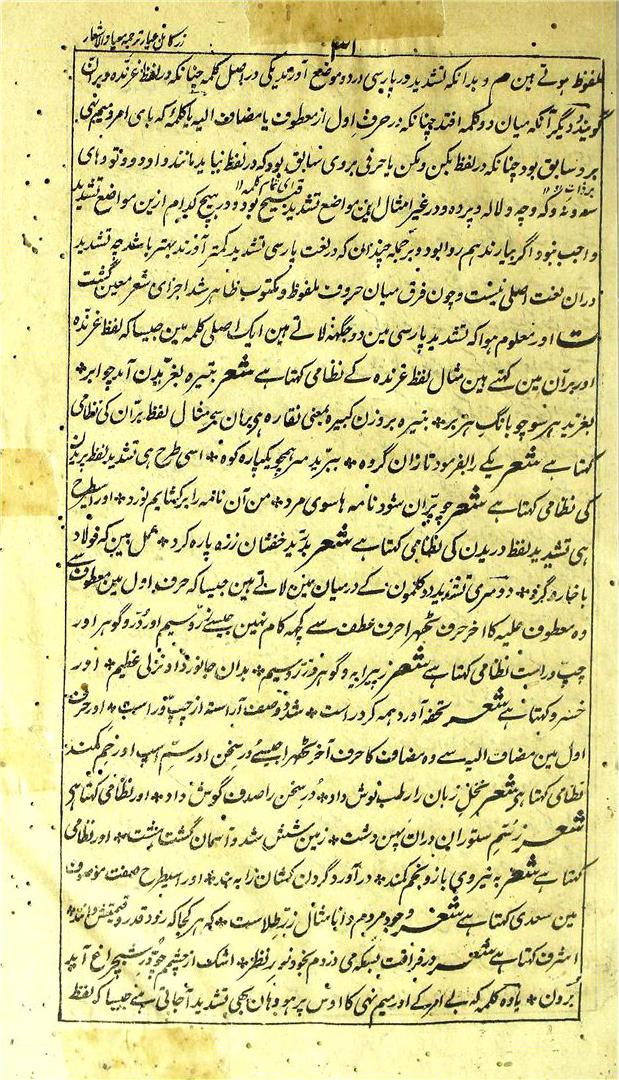 زر کامل عیار ترجمہ معیار الاشعار
۳۱
ملفوظ ہوتے ہین م و بدانکہ تشدید در پارسی در دو موضع آورند یکی در اصل کلمہ چنانکہ در لفظ غرّندہ و برّان
گویند و دیگر آنکہ میان دو کلمہ افتد چنانکہ در حرف اول از معطوف یا مضاف الیہ یا کلمہ کہ بای امر و میم نہی
برو سابق بود چنانکہ در لفظ بکن و مکن یا حرفی بروی سابق بود کہ در لفظ نیاید مانند واو دو و تو و های
سہ و نہ و کہ و چہ و لالہ و پردہ و در غیر امثال این مواضع تشدید قبیح بود و در ہیچ کدام ازین مواضع تشدید
واجب نبود اگر بیارند ہم روا بود و بر جملہ چندان کہ در لغت پارسی تشدید کمتر آورند بہتر باشد چہ تشدید
دران لغت اصلی نیست و چون فرق میان حروف ملفوظ و مکتوب ظاہر شد اجزای شعر معین گشت
ت اور معلوم ہوا کہ تشدید پارسی مین دو جگہہ لاتے ہین ایک اصلی کلمہ مین جیسا کہ لفظ غرندہ
اور برّان مین کہتے ہین مثال لفظ غرندہ کے نظامی کہتا ہے شعر تبیرہ بغرّیدن آمد چو ابر *
بغرّید ہر سو چو بانگ ہزبر * تبیرہ بروزن کبیرہ بمعنی نقارہ ہی برہان سے مثال لفظ برّان کی نظامی
کہتا ہے شعر یکے را بفرمود تازان گروہ * ببرّید سر ہمچو یکپارہ کوہ * اسی طرح ہی تشدید لفظ پریدن
کی نظامی کہتا ہے شعر چو پرّان شود نامہ ہا سوی مرد * من آن نامہ را برکشایم نورد * اور اسیطرح
ہی تشدید لفظ دریدن کی نظامی کہتا ہے شعر بدرّید خفتان زرہ پارہ کرد * عمل بین کہ فولاد
با خارہ کرد * دوسری تشدید دو کلمون کے درمیان مین لاتے ہین جیسا کہ حرف اول مین معطوف سے
وہ معطوف علیہ کا اخر حرف ٹھہرا حرف عطف سے کچہہ کام نہین جیسے زرّ و سیم اور دُرّ و گوہر اور
چپّ و راست نظامی کہتا ہے شعر ز پیرایہ و گوہر و زرّ و سیم * بدان جانور داد نزلی عظیم * اور
خسرو کہتا ہے شعر تحفہ آورد ہمہ کرد راست * شد دو صف آراستہ از چپّ و راست * اور حرف
اول مین مضاف الیہ سے وہ مضاف کا حرف آخر ٹھہرا جیسے دُرّ سخن اور سمّ اسپ اور خمّ کمند
نظامی کہتا ہی شعر نخل زبان را رطب نوش داد * دُرّ سخن را صدف گوش داد * اور نظامی کہتا ہی
شعر ز سُمّ ستوران دران پہن دشت * زمین شش شد و آسمان گشت ہشت * اور نظامی
کہتا ہے شعر بہ نیروی بازو و خمّ کمند * درآورد گردن کشان را بہ بند * اور اسیطرح صفت موصوف
مین سعدی کہتا ہے شعر وجود مردم دانا مثال زرّ طلاست * کہ ہر کجا کہ رود قدر و قیمتش دانند *
اشرف کہتا ہے شعر در فراقت بسکہ می دزدم بخود نور نظر * اشک از چشمم چو دُرّ شبچراغ آید
برون * یا وہ کلمہ کہ بے امر کے اور میم نہی کا اوس پر ہو وہان بہی تشدید آ جاتی ہے جیسا کہ لفظ